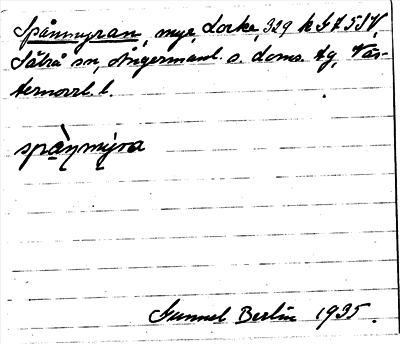 Spånmyran, myr, Locke, 329 k
Säbrå sn, Ångermanl. s. doms. tg, Väs-
ternorrl. l.
spànmỳra
Gunnel Berlin 1935.